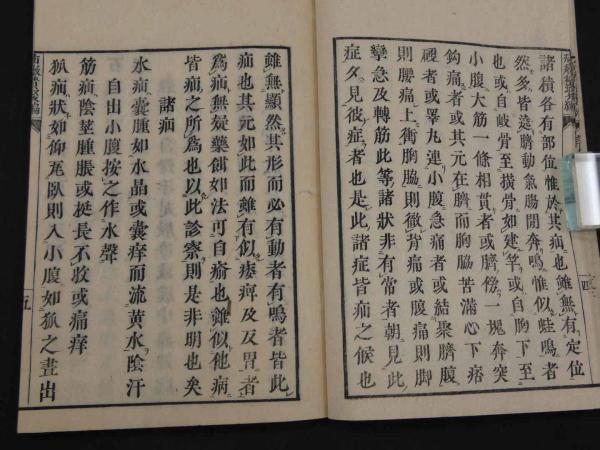 諸積各有部位惟於其疝也雖無有定位
然多皆遶臍動氣腸間奔鳴惟似蛙鳴者
也或自岐骨至橫骨如建竿或自胸下至
小腹大筋一條相貫者或臍傍一塊奔突
鈎痛者或其元在臍而胸脇苦滿心下痞
鞕者或睾丸連小腹急痛者或結聚臍腹
則腰痛上衝胸脇則徹背痛或腹痛則脚
攣急及轉筋此等諸狀非有常者朝見此
症夕見彼症者也是此諸症皆疝之候也
四
雖無顯然其形而必有動者有鳴者皆此
疝也其元如此而雖有似痿痺及反胃者
爲疝無疑藥劑如法可自瘉也雖似他病
皆疝之所爲也以此診察則是非明也矣
諸疝
水疝囊腫如水晶或囊痒而流黄水陰汗
自出小腹按之作水聲
筋疝陰莖腫脹或挺長不收或痛痒
狐疝狀如仰瓦臥則入小腹如狐之晝出
五